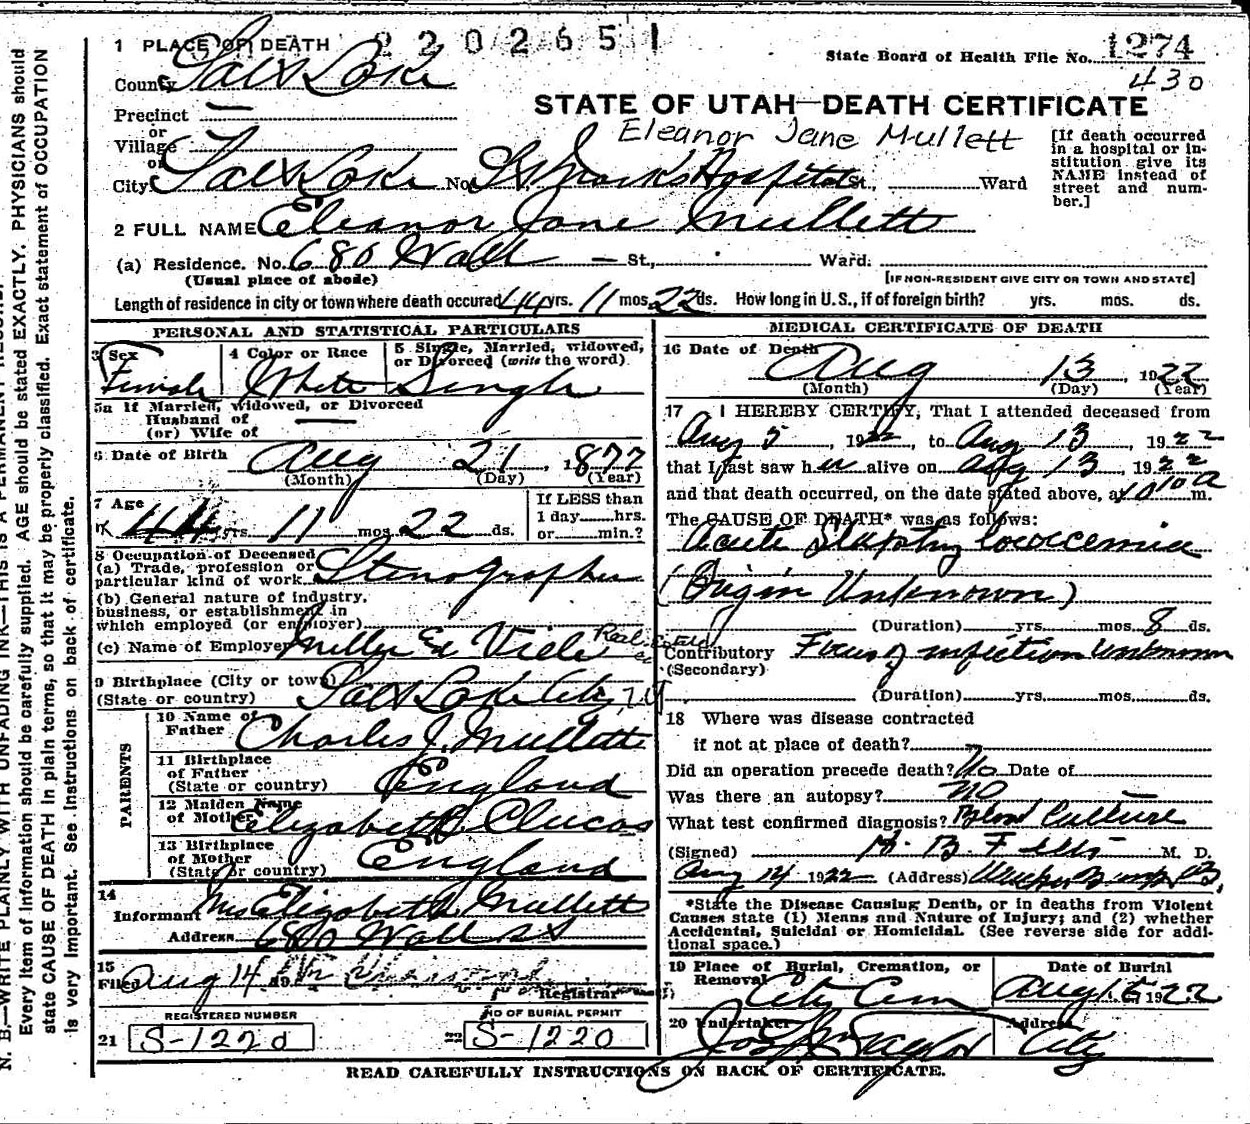 1 PLACE OF DEATH 2202651
State Board of Health File No. 1274
430
County Salt Lake
STATE OF UTAH—DEATH CERTIFICATE
Eleanor Jane Mullett
Precinct
or
Village
or
City Salt Lake No. St Mark's Hospital St., Ward
[If death occurred in a hospital or institution give its NAME instead of street and number.]
2 FULL NAME Eleanor Jane Mullett
(a) Residence. No. 680 Wall St., Ward.
(Usual place of abode) [IF NON-RESIDENT GIVE CITY OR TOWN AND STATE]
Length of residence in city or town where death occured 44 yrs. 11 mos. 22 ds. How long in U.S., if of foreign birth? yrs. mos. ds.
PERSONAL AND STATISTICAL PARTICULARS
3 Sex 4 Color or Race 5 Single, Married, widowed, or Divorced (write the word).
Female White Single
5a If Married, widowed, or Divorced
Husband of
(or) Wife of
6 Date of Birth Aug 21, 1877
(Month) (Day) (Year)
7 Age 44 yrs 11 mos. 22 ds.
If LESS than
1 day......hrs.
or......min.?
8 Occupation of Deceased
(a) Trade, profession or
particular kind of work Stenographer
(b) General nature of industry,
business, or establishment in
which employed (or employer)
(c) Name of Employer Miller & Viele Real Estate
9 Birthplace (City or town)
(State or country) Salt Lake City,
PARENTS
10 Name of
Father Charles J. Mullett
11 Birthplace
of Father
(State or country) England
12 Maiden Name
of Mother Elizabeth Clucas
13 Birthplace
of Mother
(State or country) England
14
Informant Mrs Elizabeth Mullett
Address 680 Wall St
15
Filed Aug 14
Registrar
REGISTERED NUMBER NO OF BURIAL PERMIT
21 S-1220 22 S-1220
MEDICAL CERTIFICATE OF DEATH
16 Date of Death Aug 13 1922
(Month) (Day) (Year)
17 I HEREBY CERTIFY, That I attended deceased from
Aug 5, 1922, to Aug 13, 1922
that I last saw her alive on Aug 13, 1922
and that death occurred, on the date stated above, at 10 10 a m.
The CAUSE OF DEATH* was as follows:
Acute Staphylococcemia
(Origin Unknown)
(Duration) yrs. mos. 8 ds.
Contributory Focus of infection unknown
(Secondary)
(Duration) yrs. mos. ds.
18 Where was disease contracted
if not at place of death?
Did an operation precede death? No Date of
Was there an autopsy? no
What test confirmed diagnosis? Blood Culture
(Signed) M. D.
Aug 14 1922 (Address)
*State the Disease Causing Death, or in deaths from Violent
Causes state (1) Means and Nature of Injury; and (2) whether
Accidental, Suicidal or Homicidal. (See reverse side for addi-
tional space.)
19 Place of Burial, Cremation, or Removal Date of Burial
City Cem Aug 15 1922
20 Undertaker Address
Jos Wm Taylor City
READ CAREFULLY INSTRUCTIONS ON BACK OF CERTIFICATE.
N. B.—WRITE PLAINLY WITH UNFADING INK—THIS IS A PERMANENT RECORD.
Every item of information should be carefully supplied. AGE should be stated EXACTLY. PHYSICIANS should
state CAUSE OF DEATH in plain terms, so that it may be properly classified. Exact statement of OCCUPATION
is very important. See instructions on back of certificate.